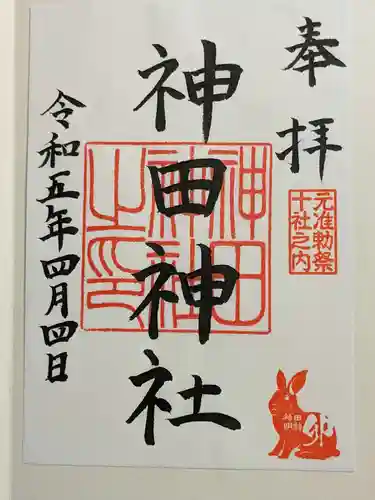 奉拝
元准勅祭
十社之内
神田神社
神田
神社
之印
令和五年四月四日
卯